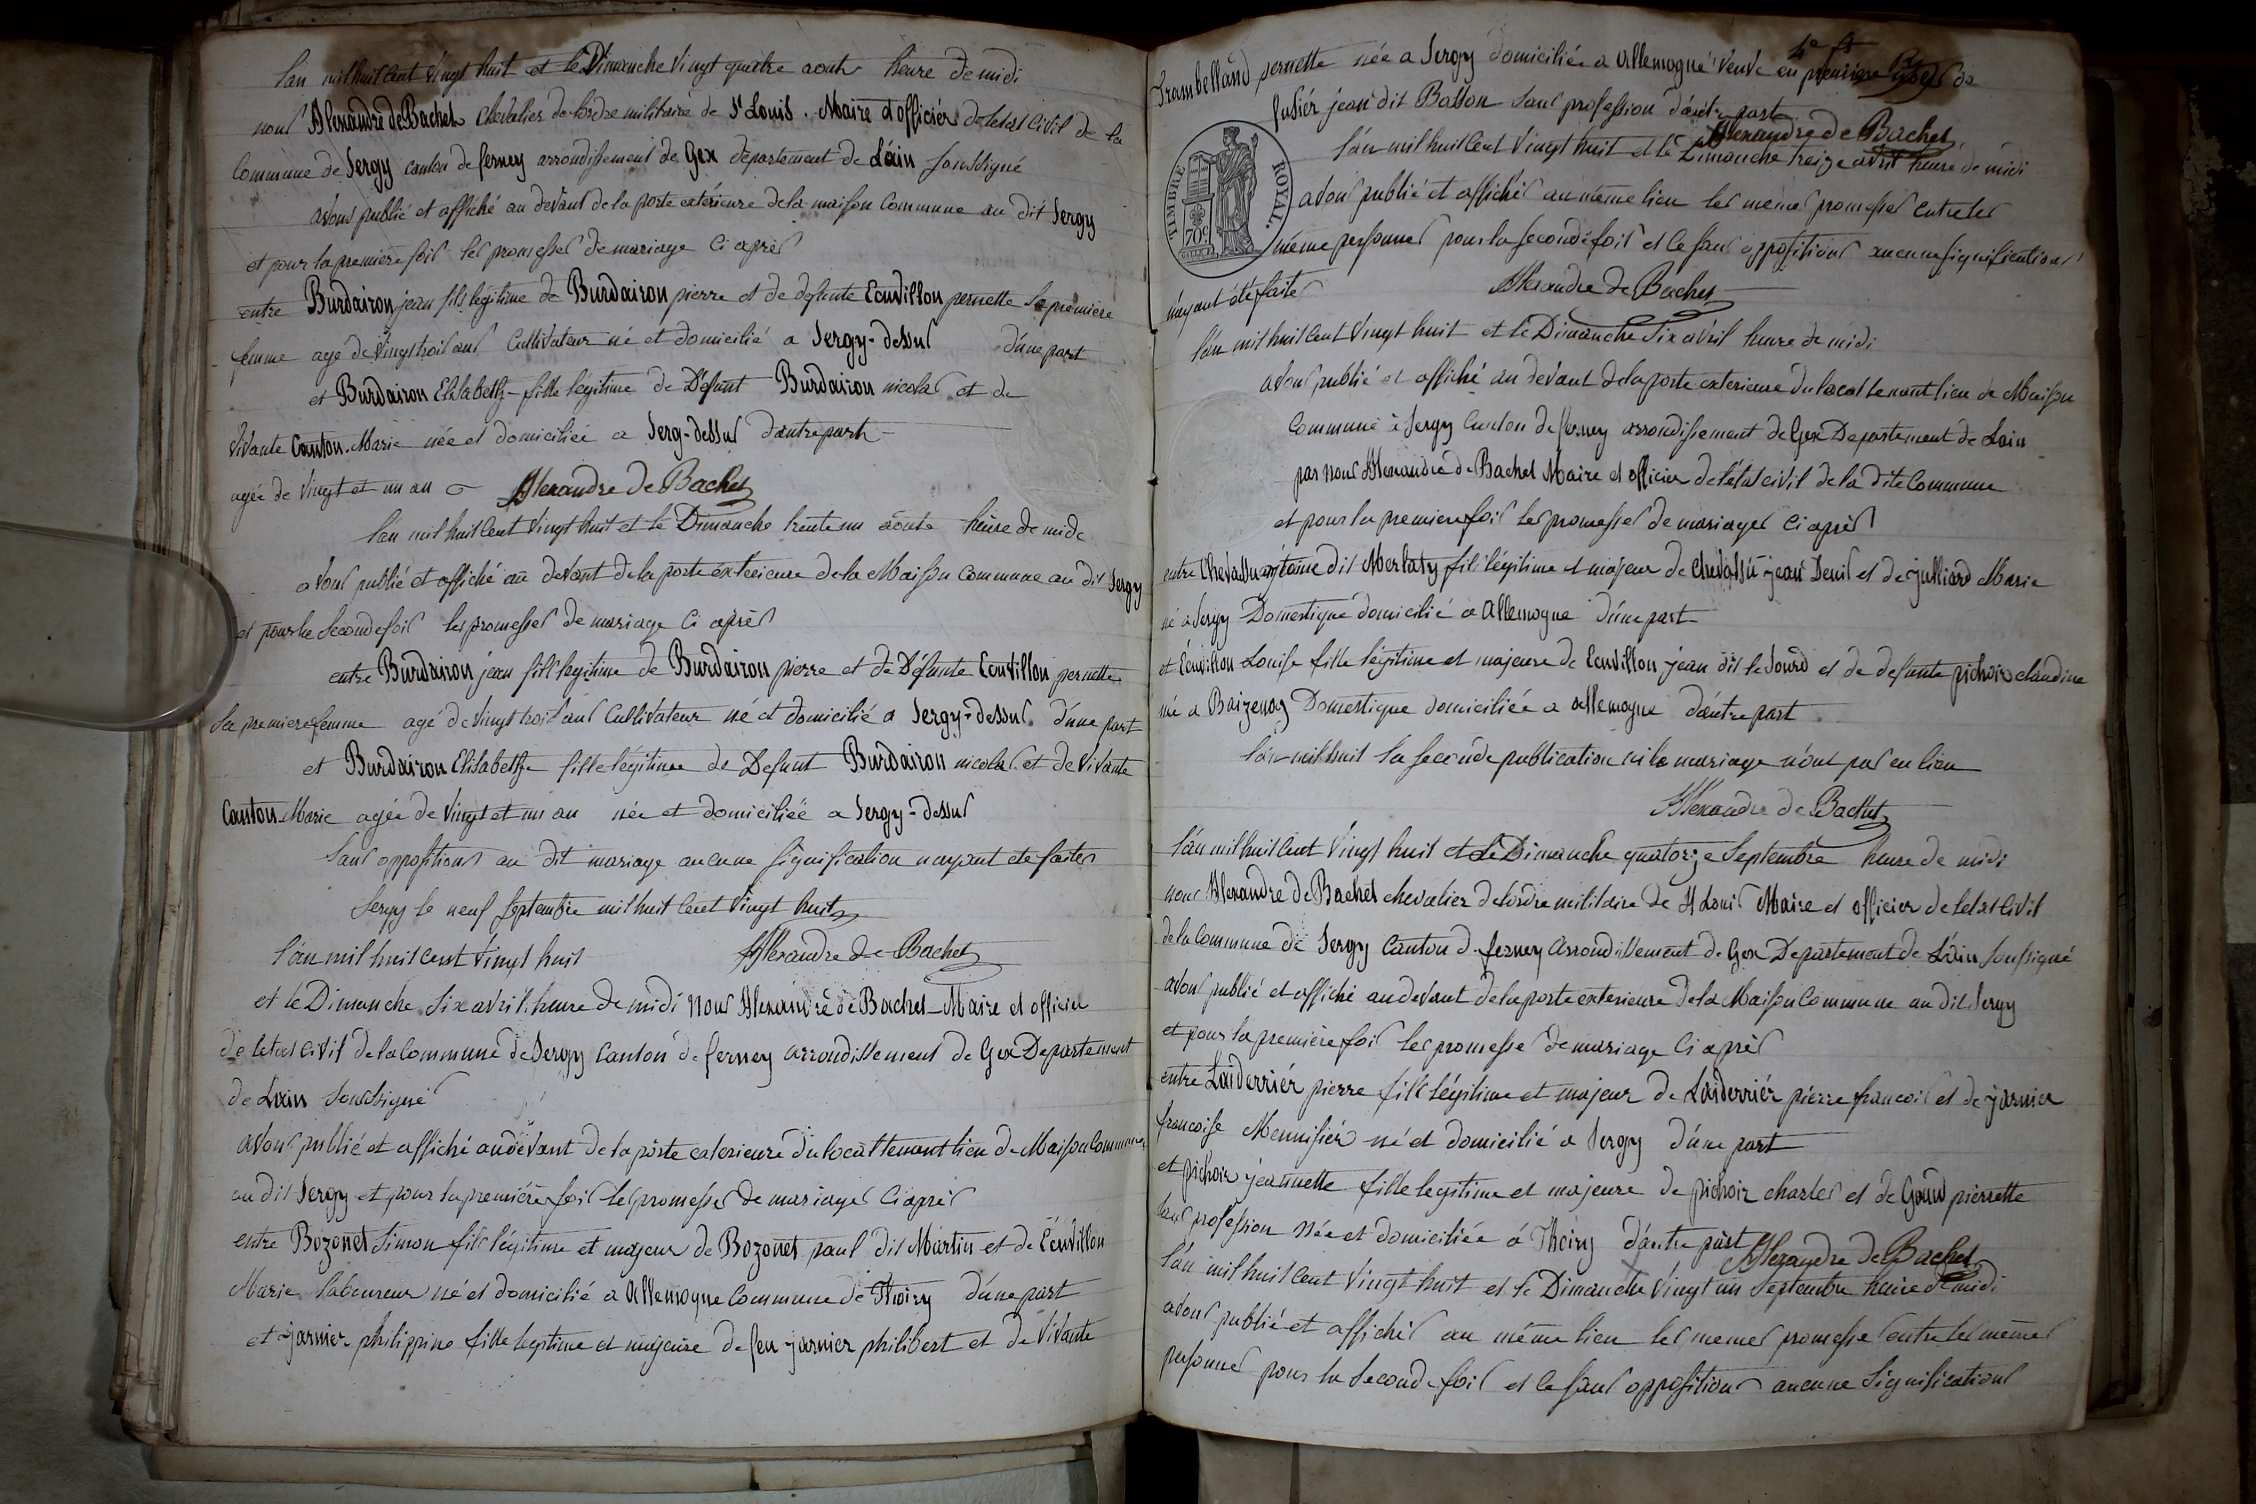 l'an mil huit Cent Vingt huit et le Dimanche Vingt quatre aout heure de midi
nous Alexandre de Bachet Chevalier de lordre militaire de St Louis. Maire et officiér de letat Civil de la
Commune de Sergy canton de ferney arrondissement de Gex département de L'ain soussigné
avons publié et affiché au devant de la porte extérieure de la maison Commune au dit Sergy
et pour la premiere fois les promesses de mariage Ci aprés
entre Burdairon jean fils legitime de Burdairon pierre et de defunte Ecuvillon pernette sa premiere
femme agé de Vingt trois ans Cultivateur né et domicilié a Sergy-dessus d'une part
et Burdairon Elisabeth fille légitime de Défunt Burdairon nicolas et de
Vivante Canton Marie née et domiciliée a Serg-dessus d'autre part
agée de Vingt et un an Alexandre de Bachet
l'an mil huit Cent Vingt huit et le Dimanche trente un aoute heure de midi
avons publié et affiché au devant de la porte exterieure de la Maison Commune au dit Sergy
et pour la Seconde fois les promesses de mariage Ci aprés
entre Burdairon jean fils legitime de Burdairon pierre et de Défunte Ecuvillon pernette
sa premiere femme agé de Vingt trois ans Cultivateur né et domicilié a Sergy-dessus d'une part
et Burdairon Elisabeth fille légitime de Defunt Burdairon nicolas et de Vivante
Canton Marie agée de Vingt et un an née et domiciliée a Sergy-dessus
Sans oppositions au dit mariage aucune signification nayant ete faites
Sergy le neuf Septembre mil huit Cent Vingt huit
l'an mil huit Cent Vingt huit Alexandre de Bachet
et le Dimanche Six avril heure de midi nous Alexandre de Bachet Maire et officier
de letat Civil de la Commune de Sergy Canton de ferney arrondissement de Gex Departement
de Lain soussigné
avons publié et affiché au devant de la porte exterieure du locat tenant lieu de Maison Commune
au dit Sergy et pour la premiére fois les promesses de mariages Ci aprés
entre Bozonet Simon fils légitime et majeur de Bozonet paul dit Martin et de Ecuvillon
Marie laboureur né et domicilié a Allemogne Commune de Thoiry d'une part
et jarnier philippine fille legitime et majeure de feu jarnier philibert et de Vivante
Trambelland pernette née a Sergy domiciliée a Allemogne Veuve en premiere de
fusiér jean dit Basson Sans profession d'autre part
Alexandre de Bachet
l'an mil huit Cent Vingt huit et le Dimanche treize avril heure de midi
avons publié et affichés au même lieu les mémes promesses entre les
même personnes pour la seconde fois et Ce sans oppositions aucune significations
n'ayant été faites Alexandre de Bachet
l'an mil huit Cent Vingt huit et le Dimanche Six avril heure de midi
avons publié et affiché au devant de la porte exterieure du locat tenant lieu de Maison
Commune à Sergy Canton de ferney arrondissement de Gex Departement de Lain
par nous Alexandre de Bachet Maire et officier de l'état civil de la dite Commune
et pour la premiere fois les promesses de mariages Ci aprés
entre Chevassu antoine dit Merlaty fils légitime et majeur de Chevassu jean Denis et de julliard Marie
né à Sergy Domestique domicilié a Allemogne d'une part
et Ecuvillon Louise fille légitime et majeure de Ecuvillon jean dit le Sourd et de defunte pichoir claudine
née a Baizenas Domestique domiciliée a allemogne d'autre part
l'an mil huit la seconde publication ni le mariage n'ont pas eu lieu
Alexandre de Bachet
l'an mil huit Cent Vingt huit et le Dimanche quatorze Septembre heure de midi
nous Alexandre de Bachet chevalier de lordre militaire de St Louis Maire et officier de letat Civil
de la Commune de Sergy Canton d ferney arrondissement de Gex Departement de L'ain soussigné
avons publié et affiché au devant de la porte exterieure de la Maison Commune au dit Sergy
et pour la premiere fois les promesse de mariage Ci aprés
entre Laiderriér pierre fils légitime et majeur de Laiderriér pierre francois et de jarnier
francoise Menuisiér né et domicilié a Sergy d'une part
et pichoir jeannette fille legitime et majeure de pichoir charles et de Goud pierrette
sans profession Née et domiciliée á Thoiry d'autre part Alexandre de Bachet
l'an mil huit Cent Vingt huit et le Dimanche Vingt un Septembre heure de midi
avons publié et affichés au même lieu les memes promesse entre les mémes
personnes pour la Seconde fois et Ce sans oppositions aucune Significations
TIMBRE ROYAL.
70c